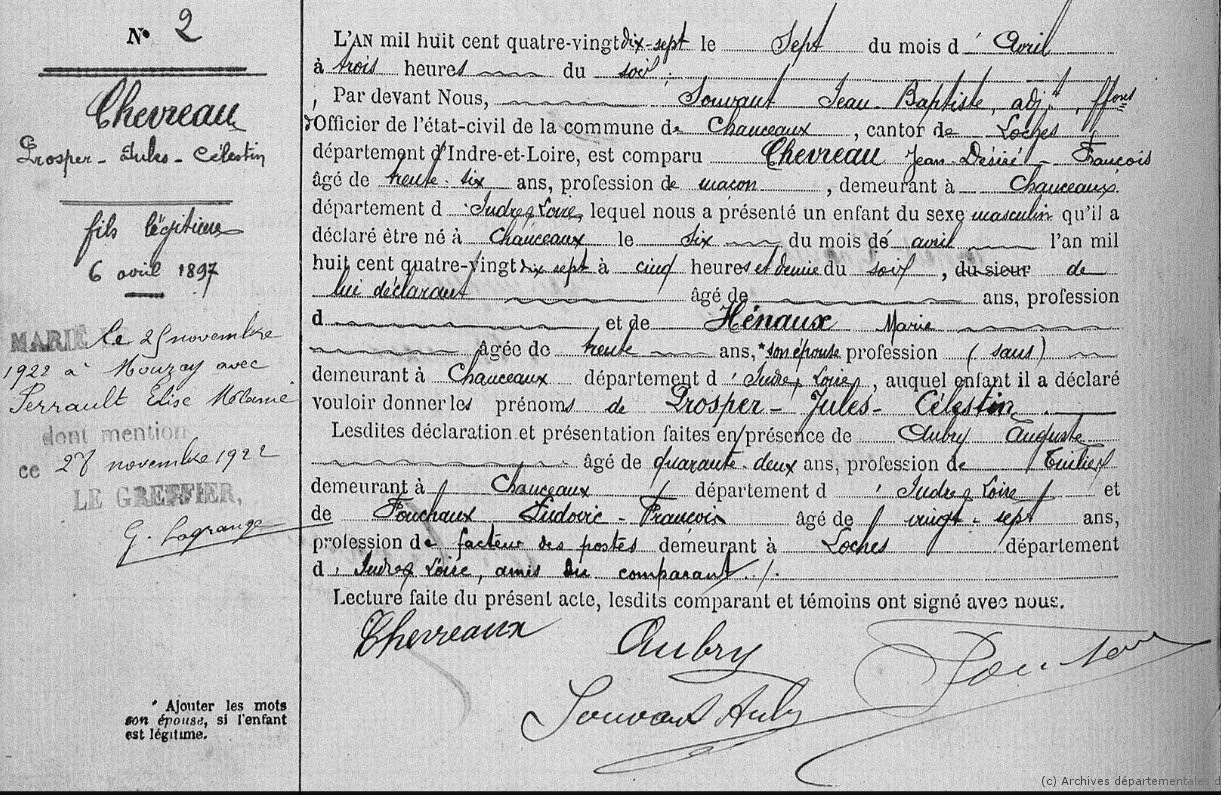 N° 2
Chevreau
Prosper - Jules - Célestin
fils légitime
6 avril 1897
MARIÉ le 25 novembre
1922 à Mouzay avec
Perrault Elise Mélanie
dont mention
ce 28 novembre 1922
LE GREFFIER,
G. Lagrange
* Ajouter les mots
son épouse, si l'enfant
est légitime.
L'AN mil huit cent quatre-vingt dix-sept le Sept du mois d' Avril
à trois heures du soir
Par devant Nous, Souvant Jean-Baptiste, adjt, ffons
d'Officier de l'état-civil de la commune de Chanceaux, canton de Loches,
département d'Indre-et-Loire, est comparu Chevreau Jean-Désiré - François
âgé de trente-six ans, profession de maçon, demeurant à Chanceaux
département d'Indre & Loire, lequel nous a présenté un enfant du sexe masculin qu'il a
déclaré être né à Chanceaux le six du mois de avril l'an mil
huit cent quatre-vingt dix sept à cinq heures et demie du soir, du sieur de
lui déclarant âgé de ans, profession
d et de Hénaux Marie
âgée de trente ans, * son épouse profession (sans)
demeurant à Chanceaux département d'Indre & Loire, auquel enfant il a déclaré
vouloir donner les prénoms de Prosper - Jules - Célestin
Lesdites déclaration et présentation faites en présence de Aubry Auguste
âgé de quarante-deux ans, profession de Tuilier
demeurant à Chanceaux département d'Indre & Loire et
de Fouchaux Ludovic - François âgé de vingt-sept ans,
profession de facteur des postes demeurant à Loches département
d'Indre & Loire, amis du comparant
Lecture faite du présent acte, lesdits comparant et témoins ont signé avec nous.
Chevreaux Aubry
Souvant
(c) Archives départementales d